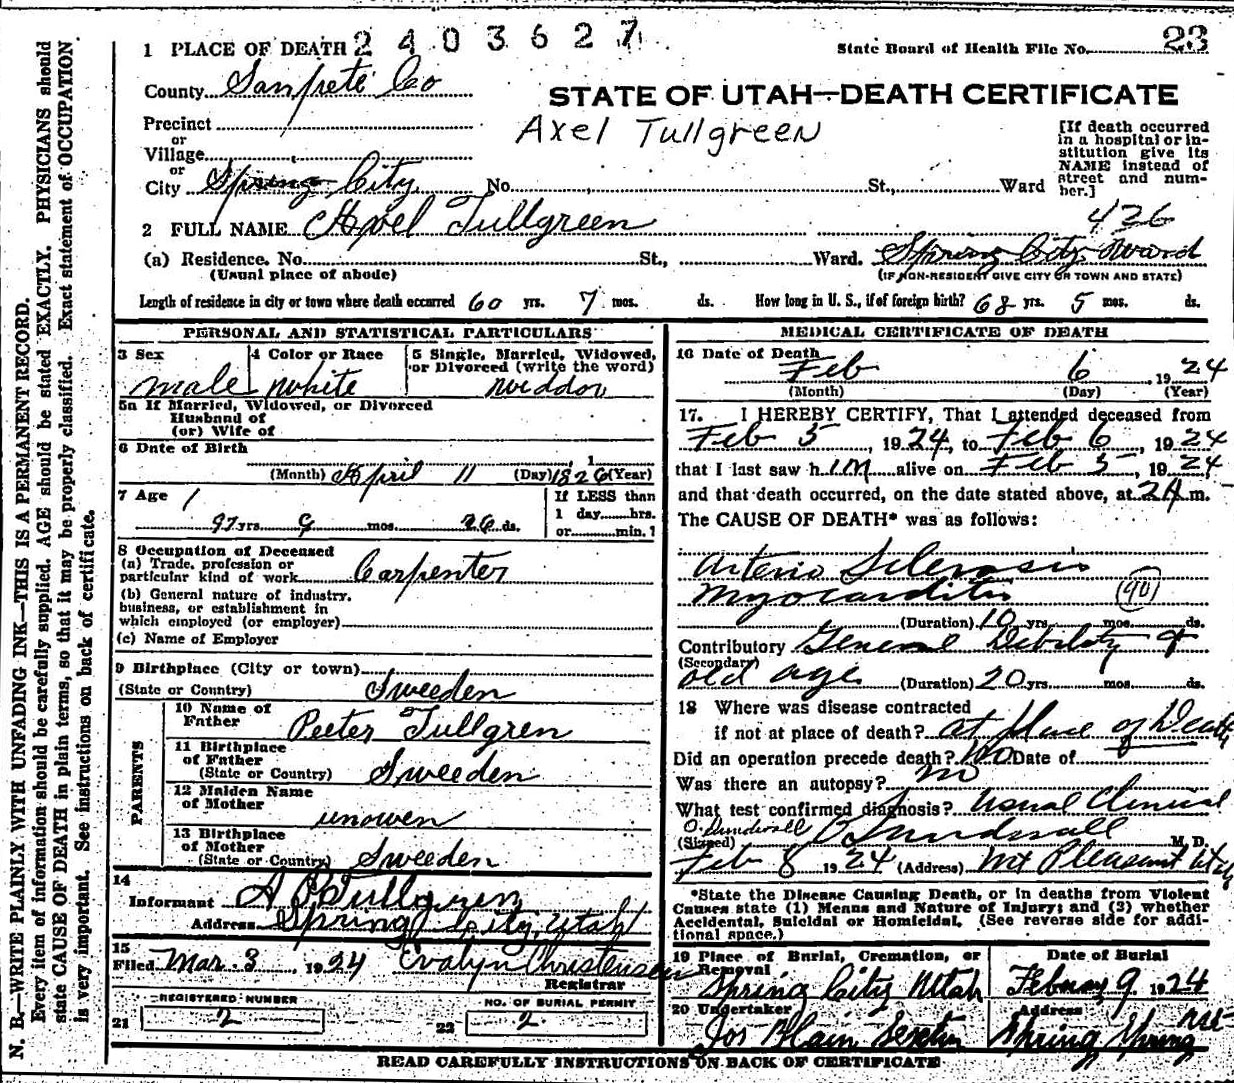 1 PLACE OF DEATH 2403627
State Board of Health File No. 23
County Sanpete Co
STATE OF UTAH—DEATH CERTIFICATE
Precinct
Axel Tullgreen
or
Village
or
City Spring City No. St., Ward
[If death occurred
in a hospital or in-
stitution give its
NAME instead of
street and num-
ber.]
436
2 FULL NAME Axel Tullgreen
(a) Residence. No. St., Ward. Spring City Ward
(Usual place of abode) (IF NON-RESIDENT GIVE CITY OR TOWN AND STATE)
Length of residence in city or town where death occurred 60 yrs. 7 mos. ds. How long in U. S., if of foreign birth? 68 yrs. 5 mos. ds.
PERSONAL AND STATISTICAL PARTICULARS
3 Sex 4 Color or Race 5 Single, Married, Widowed,
or Divorced (write the word)
male white widdov
5a If Married, Widowed, or Divorced
Husband of
(or) Wife of
6 Date of Birth
, 1
(Month) April 11 (Day) 1826 (Year)
7 Age If LESS than
1 day hrs.
97 yrs. 9 mos. 26 ds. or min. ?
8 Occupation of Deceased
(a) Trade, profession or
particular kind of work Carpenter
(b) General nature of industry,
business, or establishment in
which employed (or employer)
(c) Name of Employer
9 Birthplace (City or town)
(State or Country) Sweeden
PARENTS
10 Name of
Father Peeter Tullgren
11 Birthplace
of Father
(State or Country) Sweeden
12 Maiden Name
of Mother
unowen
13 Birthplace
of Mother
(State or Country) Sweeden
14
Informant A P Tullgren
Address Spring City, Utah
15
Filed Mar. 3, 1924 Evalyn Christensen
Registrar
REGISTERED NUMBER NO. OF BURIAL PERMIT
21 2 22 2
MEDICAL CERTIFICATE OF DEATH
16 Date of Death
Feb 6, 1924
(Month) (Day) (Year)
17. I HEREBY CERTIFY, That I attended deceased from
Feb 5, 1924, to Feb 6, 1924
that I last saw h im alive on Feb 5, 1924
and that death occurred, on the date stated above, at 2 A m.
The CAUSE OF DEATH* was as follows:
Arterio Sclerosis
Myocarditis (90)
(Duration) 10 yrs. mos. ds.
Contributory General Debility &
(Secondary)
old age (Duration) 20 yrs. mos. ds.
18 Where was disease contracted
if not at place of death? at place of Death
Did an operation precede death? no Date of
Was there an autopsy? no
What test confirmed diagnosis? Usual Clinical
O. Sundwall
(Signed) O Sundwall M. D.
Feb 8 1924 (Address) Mt Pleasant Utah
*State the Disease Causing Death, or in deaths from Violent
Causes state (1) Means and Nature of Injury; and (2) whether
Accidental, Suicidal or Homicidal. (See reverse side for addi-
tional space.)
19 Place of Burial, Cremation, or
Removal Date of Burial
Spring City Utah Febuary 9 1924
20 Undertaker Address
Jos Blain Sexton Spring Spring
READ CAREFULLY INSTRUCTIONS ON BACK OF CERTIFICATE
N. B.—WRITE PLAINLY WITH UNFADING INK—THIS IS A PERMANENT RECORD.
Every item of information should be carefully supplied. AGE should be stated EXACTLY. PHYSICIANS should
state CAUSE OF DEATH in plain terms, so that it may be properly classified. Exact statement of OCCUPATION
is very important. See instructions on back of certificate.